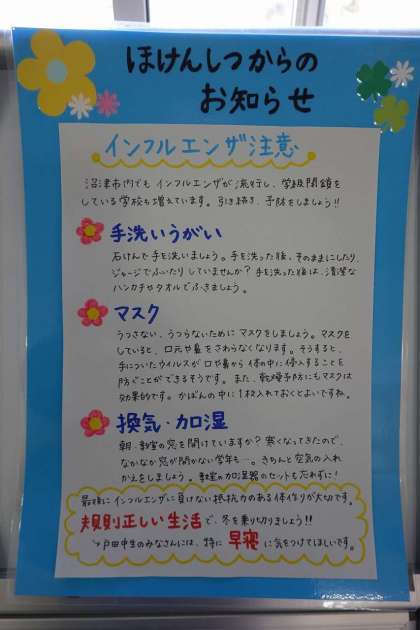 ほけんしつからの
お知らせ
インフルエンザ注意
沼津市内でも インフルエンザが 流行し、学級閉鎖を
している学校も増えています。引き続き、予防をしましょう!!
手洗いうがい
石けんで手を洗いましょう。手を洗った後、そのままにしたり、
ジャージでふいたり していませんか？手を洗った後は、清潔な
ハンカチやタオルでふきましょう。
マスク
うつさない、うつらないために マスクをしましょう。マスクを
していると、口元や鼻をさわらなくなります。そうすると、
手についたウイルスが口や鼻から 体の中に侵入することを
防ぐことができるそうです。また、乾燥予防にもマスクは
効果的です。かばんの中に1枚入れておくとよいですね。
換気・加湿
朝・教室の窓を開けていますか？寒くなってきたので、
なかなか窓が開かない学年も…。きちんと空気の入れ
かえをしましょう。教室の加湿器のセットも忘れずに！
最後にインフルエンザに負けない抵抗力のある体作りが大切です。
規則正しい生活で、冬を乗り切りましょう!!
戸田中生のみなさんには、特に 早寝 に気をつけてほしいです。